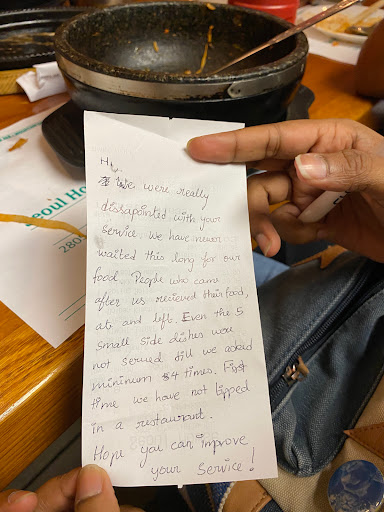 Hi,
We were really
dissapointed with your
service. We have never
waited this long for our
food. People who came
after us recieved their food,
ate and left. Even the 5
small side dishes were
not served till we asked
mininum 4 times. First
time we have not tipped
in a restaurant.
Hope you can improve
your service!
Seoul Ho
280